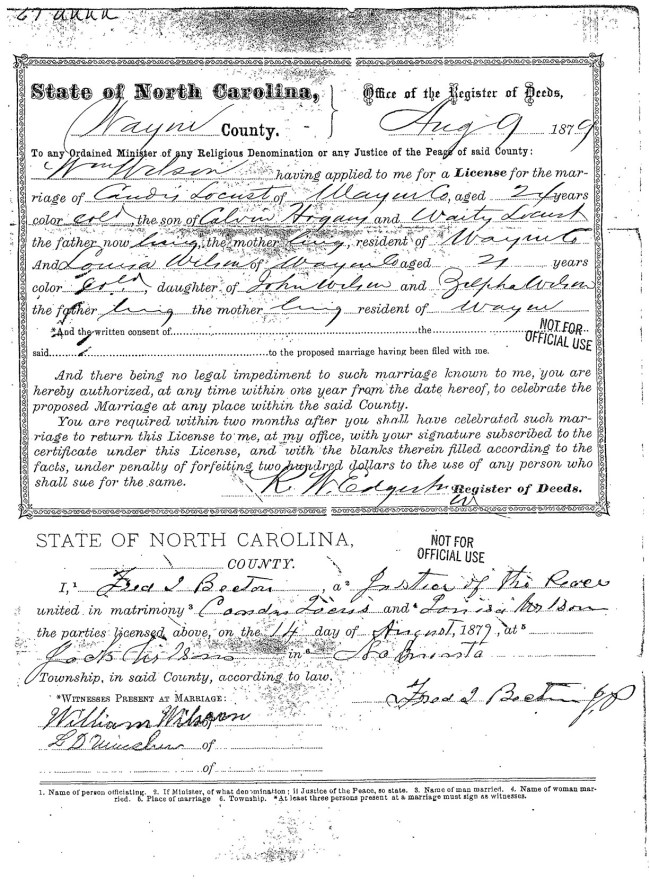 State of North Carolina, Office of the Register of Deeds,
Wayne County. Aug 9 1879
To any Ordained Minister of any Religious Denomination or any Justice of the Peace of said County:
Wm Wilson having applied to me for a License for the mar-
riage of Candis Locust of Wayne Co, aged 24 years
color Cold, the son of Calvin Hogans and Waity Locust
the father now living, the mother living, resident of Wayne Co
And Louisa Wilson of Wayne Co aged 21 years
color Cold, daughter of John Wilson and Zilpha Wilson
the father living the mother living resident of Wayne
*And the written consent of the
said to the proposed marriage having been filed with me.
NOT FOR
OFFICIAL USE
And there being no legal impediment to such marriage known to me, you are
hereby authorized, at any time within one year from the date hereof, to celebrate the
proposed Marriage at any place within the said County.
You are required within two months after you shall have celebrated such mar-
riage to return this License to me, at my office, with your signature subscribed to the
certificate under this License, and with the blanks therein filled according to the
facts, under penalty of forfeiting two hundred dollars to the use of any person who
shall sue for the same.
R. W. Register of Deeds.
STATE OF NORTH CAROLINA,
NOT FOR
OFFICIAL USE
COUNTY.
I,¹ Fred I Becton, a² Justice of the Peace
united in matrimony³ and⁴ Louisa Wilson
the parties licensed above, on the 14 day of August, 1879, at⁵
in⁶ Nahunta
Township, in said County, according to law.
*WITNESSES PRESENT AT MARRIAGE: Fred I Becton JP
William Wilson of
L D of
of
1. Name of person officiating. 2. If Minister, of what denomination; if Justice of the Peace, so state. 3. Name of man married. 4. Name of woman mar-
ried. 5. Place of marriage 6. Township. *At least three persons present at a marriage must sign as witnesses.